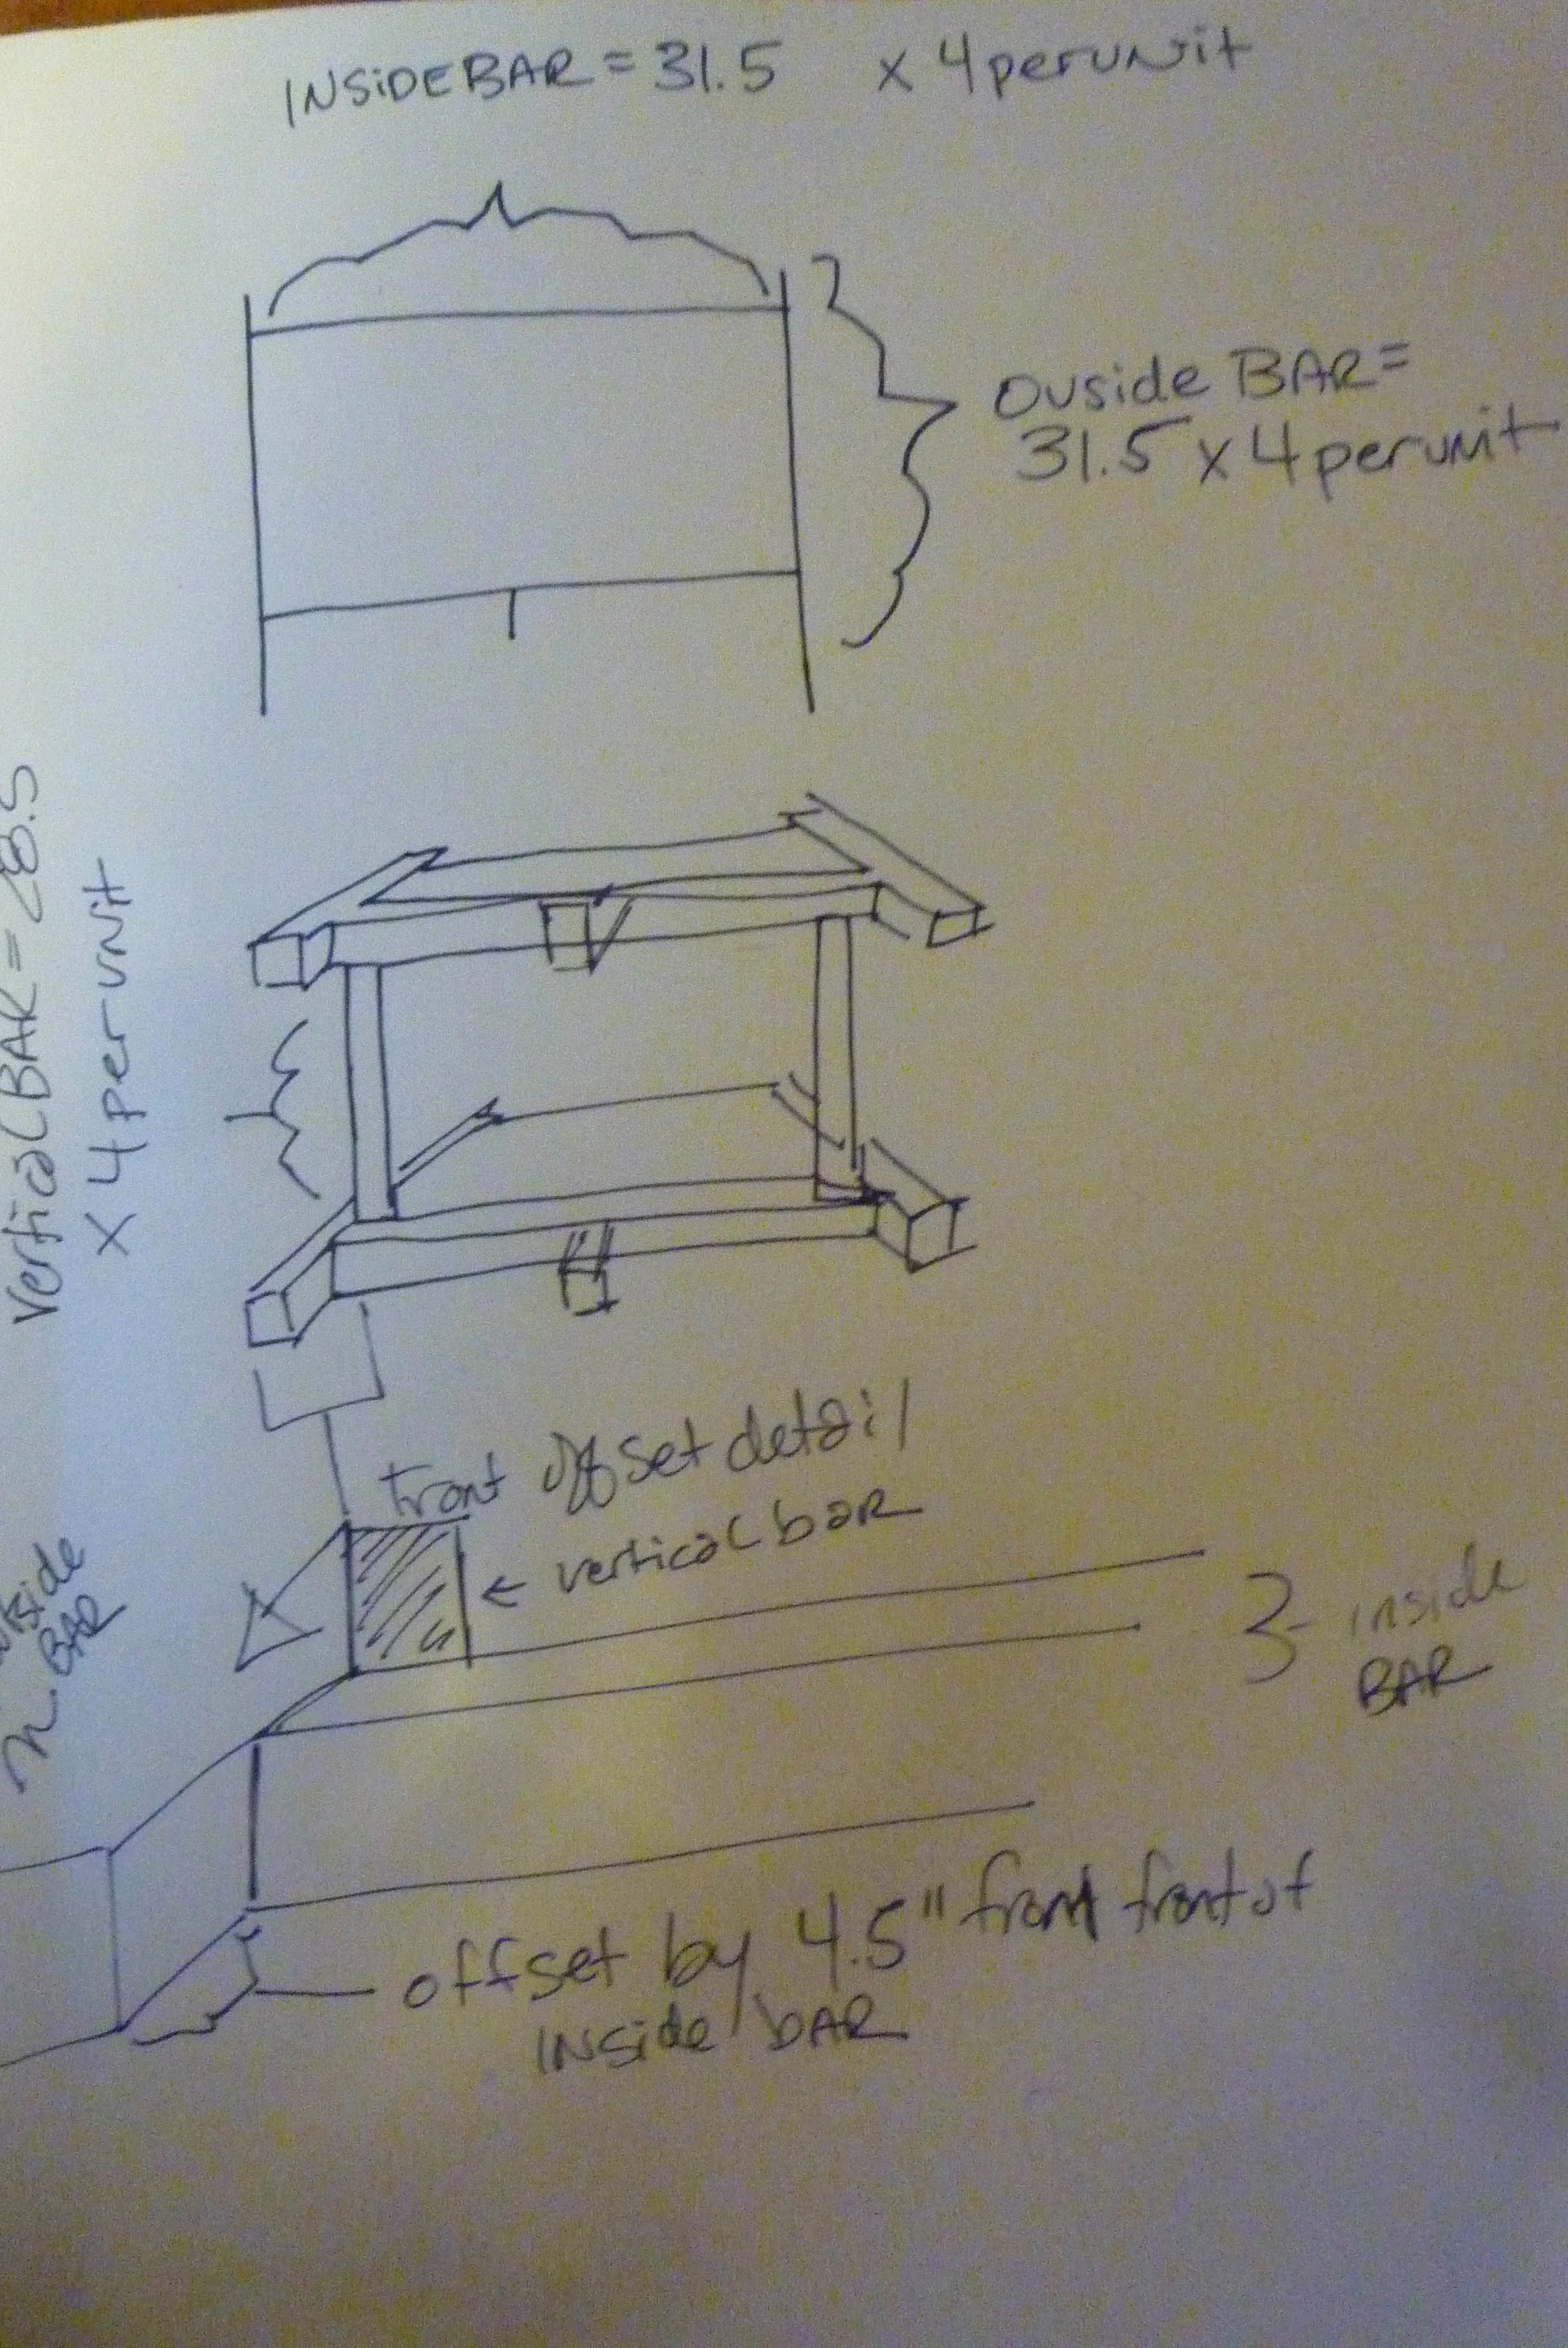 INSiDE BAR = 31.5 x 4 per uNit
Ouside BAR =
31.5 x 4 per unit
Vertical BAR = 28.5
x 4 per unit
front offset detail
← vertical bar
inside
BAR
BAR
offset by 4.5" from front of
INside bAR